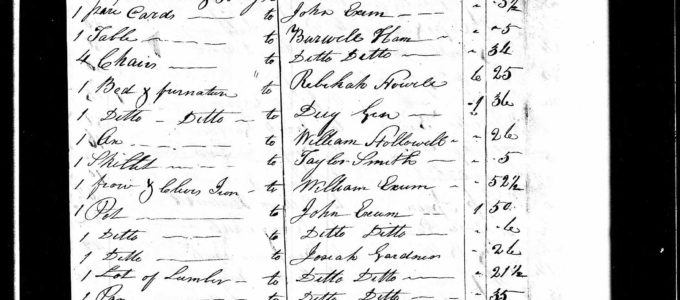 1 pare Cards — to John Exum — " 5½
1 Table — — to Burwell Ham — " 5
4 Chairs — — to Ditto Ditto — " 36
1 Bed & furnature " to Rebekah Howell 6 25
1 Ditto — Ditto — to — 9 36
1 Ax — — to William Hollowell — " 26
1 Skillet — — to Taylor Smith — " 5
1 frow & Clevis Iron — to William Exum — " 52½
1 Pot — — to John Exum — 1 50
1 Ditto — — to Ditto Ditto — " 6
1 Ditto — — to Josiah Gardner " 26
1 Lot of Lumber — to Ditto Ditto — " 21½
1 — to Ditto Ditto — " 35